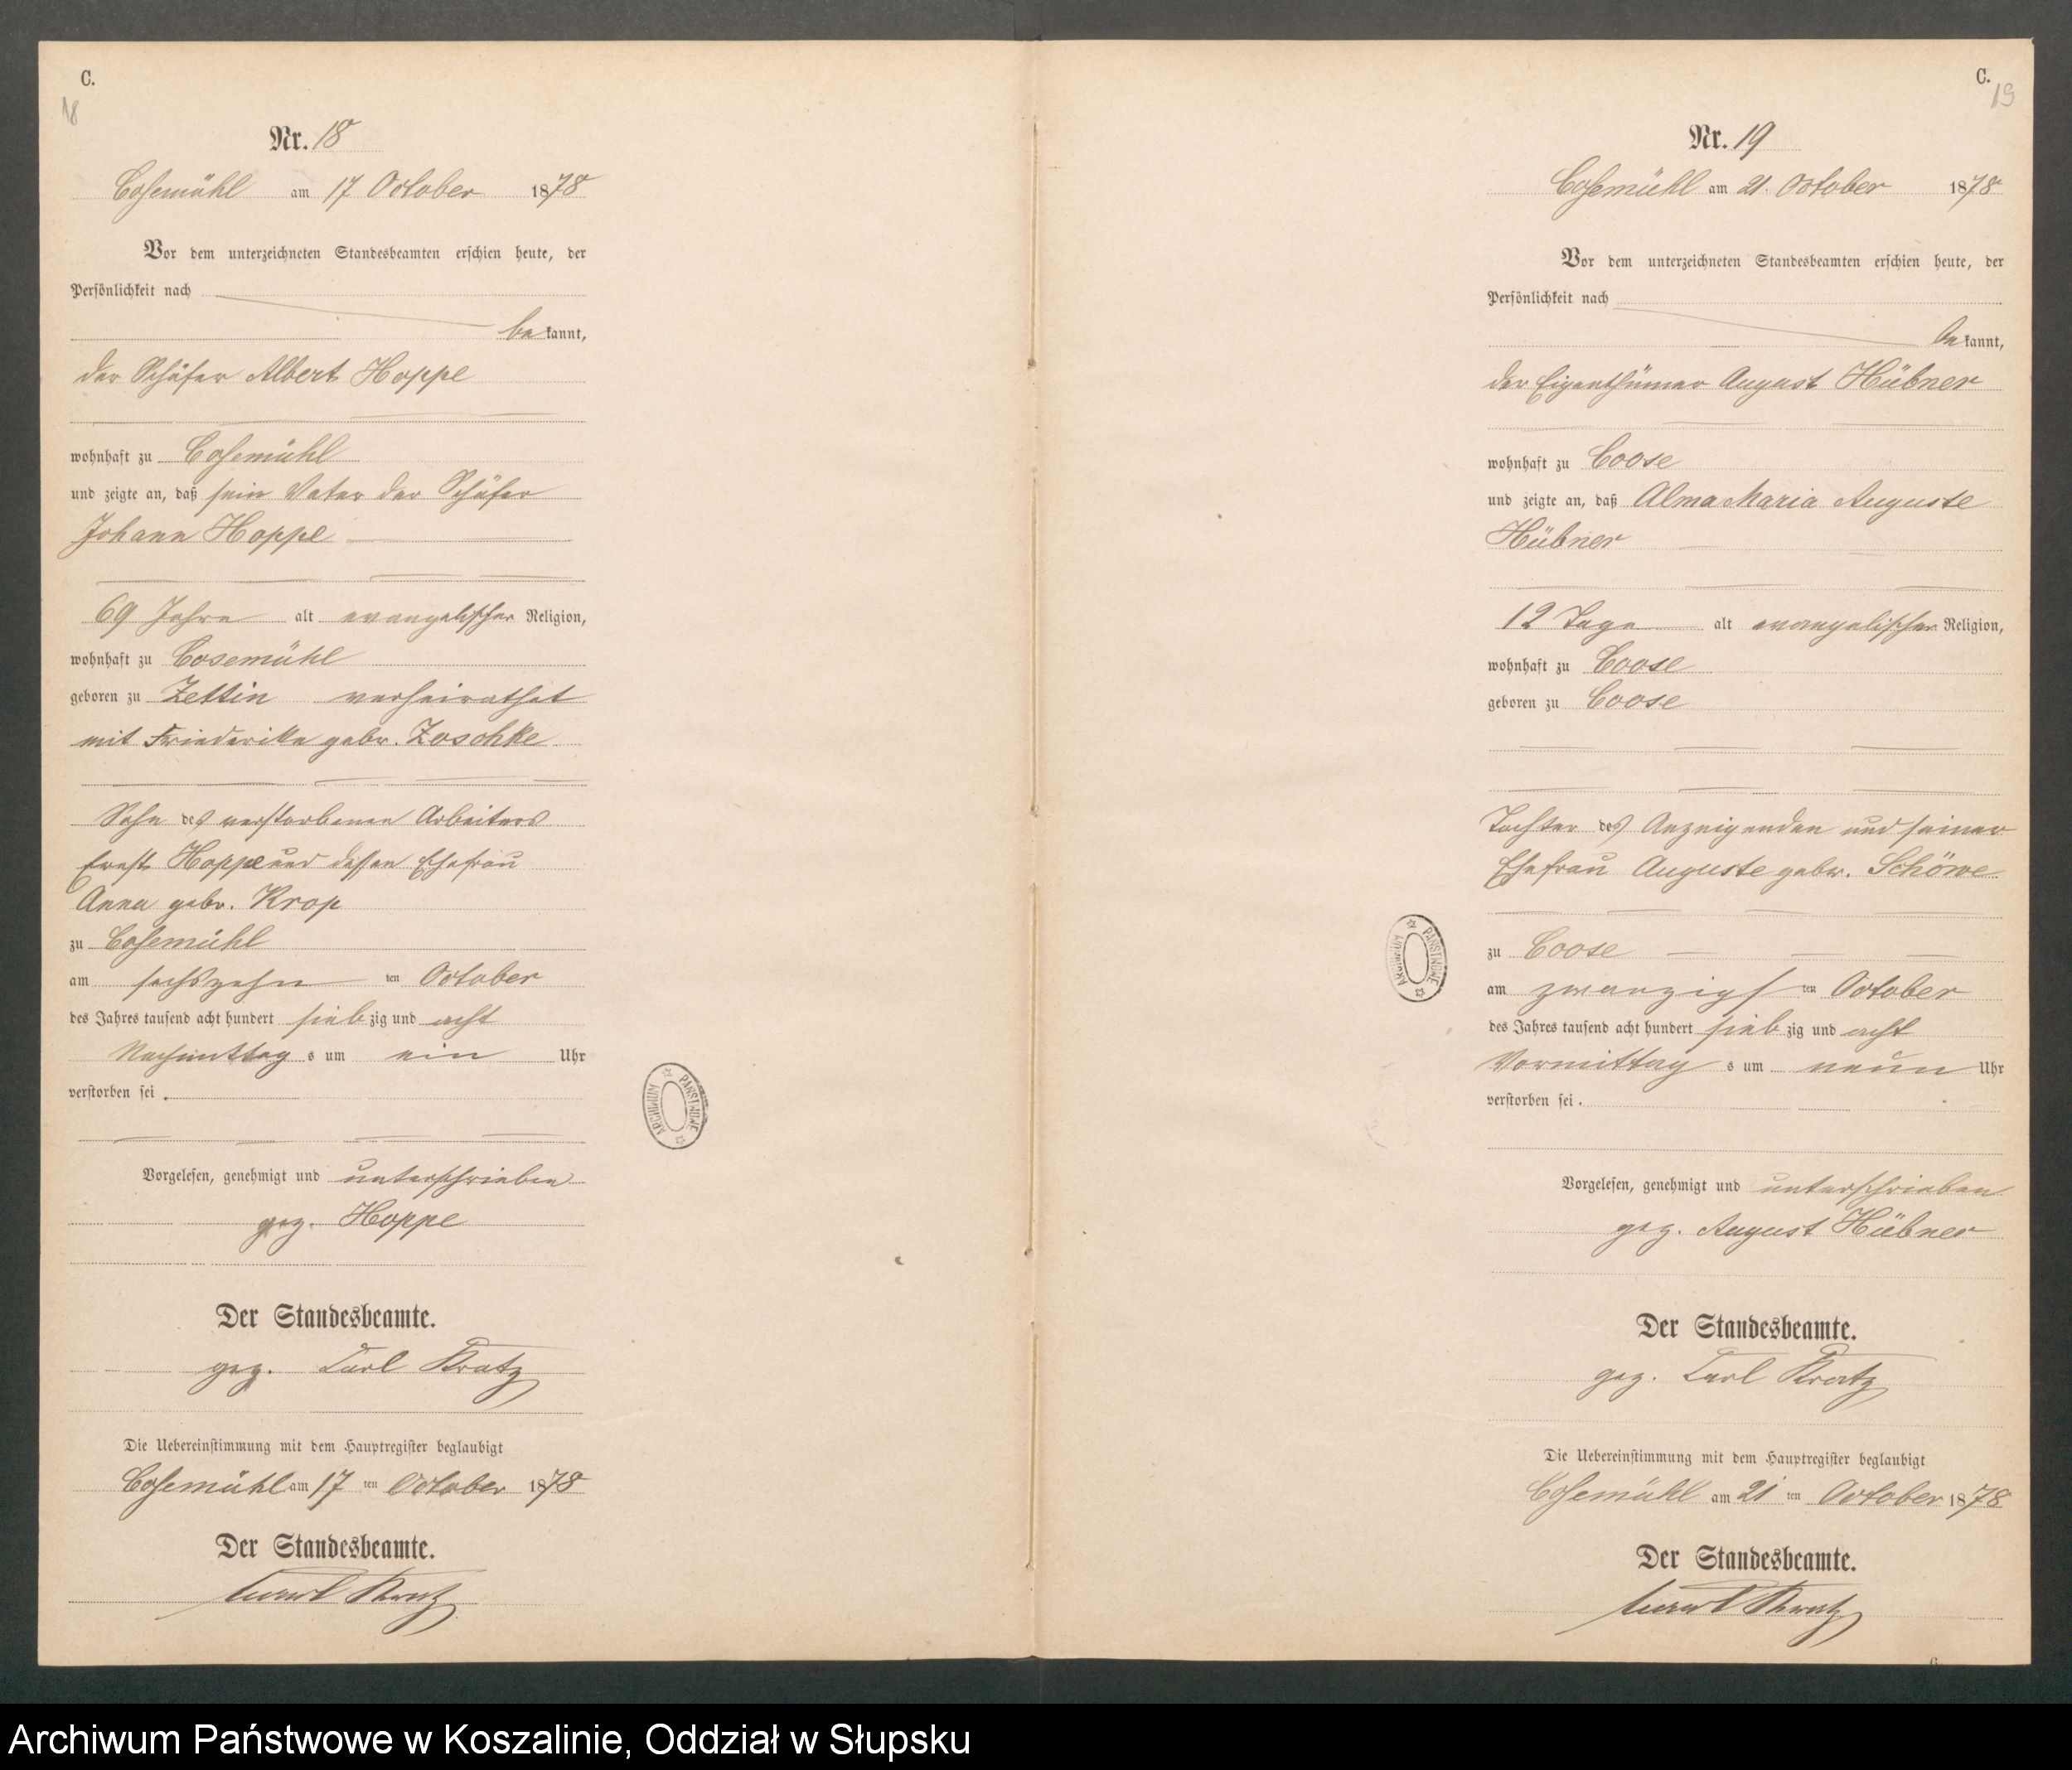 C.
18
Nr. 18
Cosemühl am 17 October 1878
Vor dem unterzeichneten Standesbeamten erschien heute, der
Persönlichkeit nach
bekannt,
der Schäfer Albert Hoppe
wohnhaft zu Cosemühl
und zeigte an, daß sein Vater der Schäfer
Johann Hoppe
69 Jahre alt evangelischer Religion,
wohnhaft zu Cosemühl
geboren zu Zettin verheirathet
mit Friederike gebor. Zoschke
Sohn des verstorbenen Arbeiters
Ernst Hoppe und dessen Ehefrau
Anna gebor. Krop
zu Cosemühl
am sechszehn ten October
des Jahres tausend acht hundert siebzig und acht
Nachmittags um ein Uhr
verstorben sei.
Vorgelesen, genehmigt und unterschrieben
gez. Hoppe
Der Standesbeamte.
gez. Carl Kratz
Die Uebereinstimmung mit dem Hauptregister beglaubigt
Cosemühl am 17 ten October 1878
Der Standesbeamte.
Carl Kratz
ARCHIWUM PAŃSTWOWE
C.
19
Nr. 19
Cosemühl am 21. October 1878
Vor dem unterzeichneten Standesbeamten erschien heute, der
Persönlichkeit nach
bekannt,
der Eigenthümer August Hübner
wohnhaft zu Coose
und zeigte an, daß Alma Maria Auguste
Hübner
12 Tage alt evangelischer Religion,
wohnhaft zu Coose
geboren zu Coose
Tochter des Anzeigenden und seiner
Ehefrau Auguste gebor. Schöwe
zu Coose
am zwanzigsten October
des Jahres tausend acht hundert siebzig und acht
Vormittags um neun Uhr
verstorben sei.
Vorgelesen, genehmigt und unterschrieben
gez. August Hübner
Der Standesbeamte.
gez. Carl Kratz
Die Uebereinstimmung mit dem Hauptregister beglaubigt
Cosemühl am 21 ten October 1878
Der Standesbeamte.
Carl Kratz
ARCHIWUM PAŃSTWOWE
Archiwum Państwowe w Koszalinie, Oddział w Słupsku